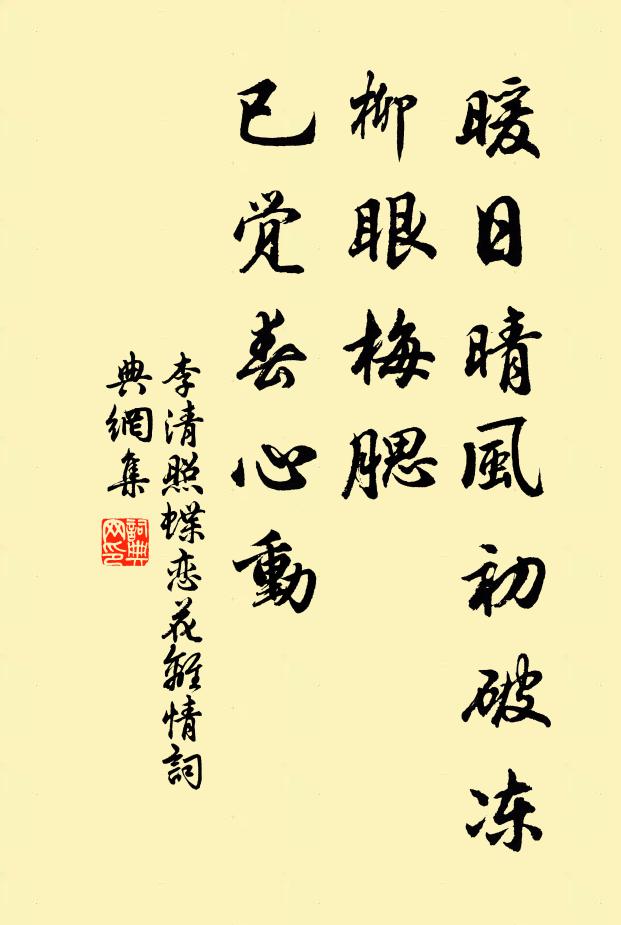 暖日晴風初破冻
柳眼梅腮
已觉春心動
李清照蝶恋花離情詞
典網集
詞典
网印